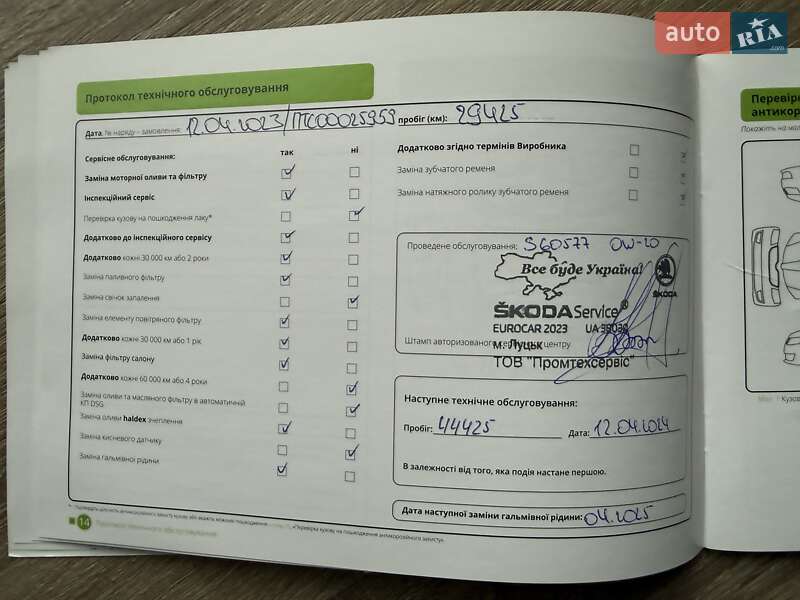 auto RIA.com
Протокол технічного обслуговування
Дата, № наряду – замовлення: 12.04.2023/ПТС00025959 пробіг (км): 29425
Сервісне обслуговування: так ні
Заміна моторної оливи та фільтру
Інспекційний сервіс
Перевірка кузову на пошкодження лаку*
Додатково до інспекційного сервісу
Додатково кожні 30 000 км або 2 роки
Заміна паливного фільтру
Заміна свічок запалення
Заміна елементу повітряного фільтру
Додатково кожні 30 000 км або 1 рік
Заміна фільтру салону
Додатково кожні 60 000 км або 4 роки
Заміна оливи та масляного фільтру в автоматичній
КП DSG
Заміна оливи haldex зчеплення
Заміна кисневого датчику
Заміна гальмівної рідини
14
Додатково згідно термінів Виробника
Заміна зубчатого ременя
Заміна натяжного ролику зубчатого ременя
Проведене обслуговування: S60577 0W-20
Все буде Україна!
ŠKODA
ŠKODA Service®
EUROCAR 2023 UA
Штамп авторизованого сервісного центру
м. Луцьк
ТОВ "Промтехсервіс"
Наступне технічне обслуговування:
Пробіг: 44425 Дата: 12.04.2024
В залежності від того, яка подія настане першою.
Дата наступної заміни гальмівної рідини: 04.2025
Перевірк
антикоро
Покажіть на мал